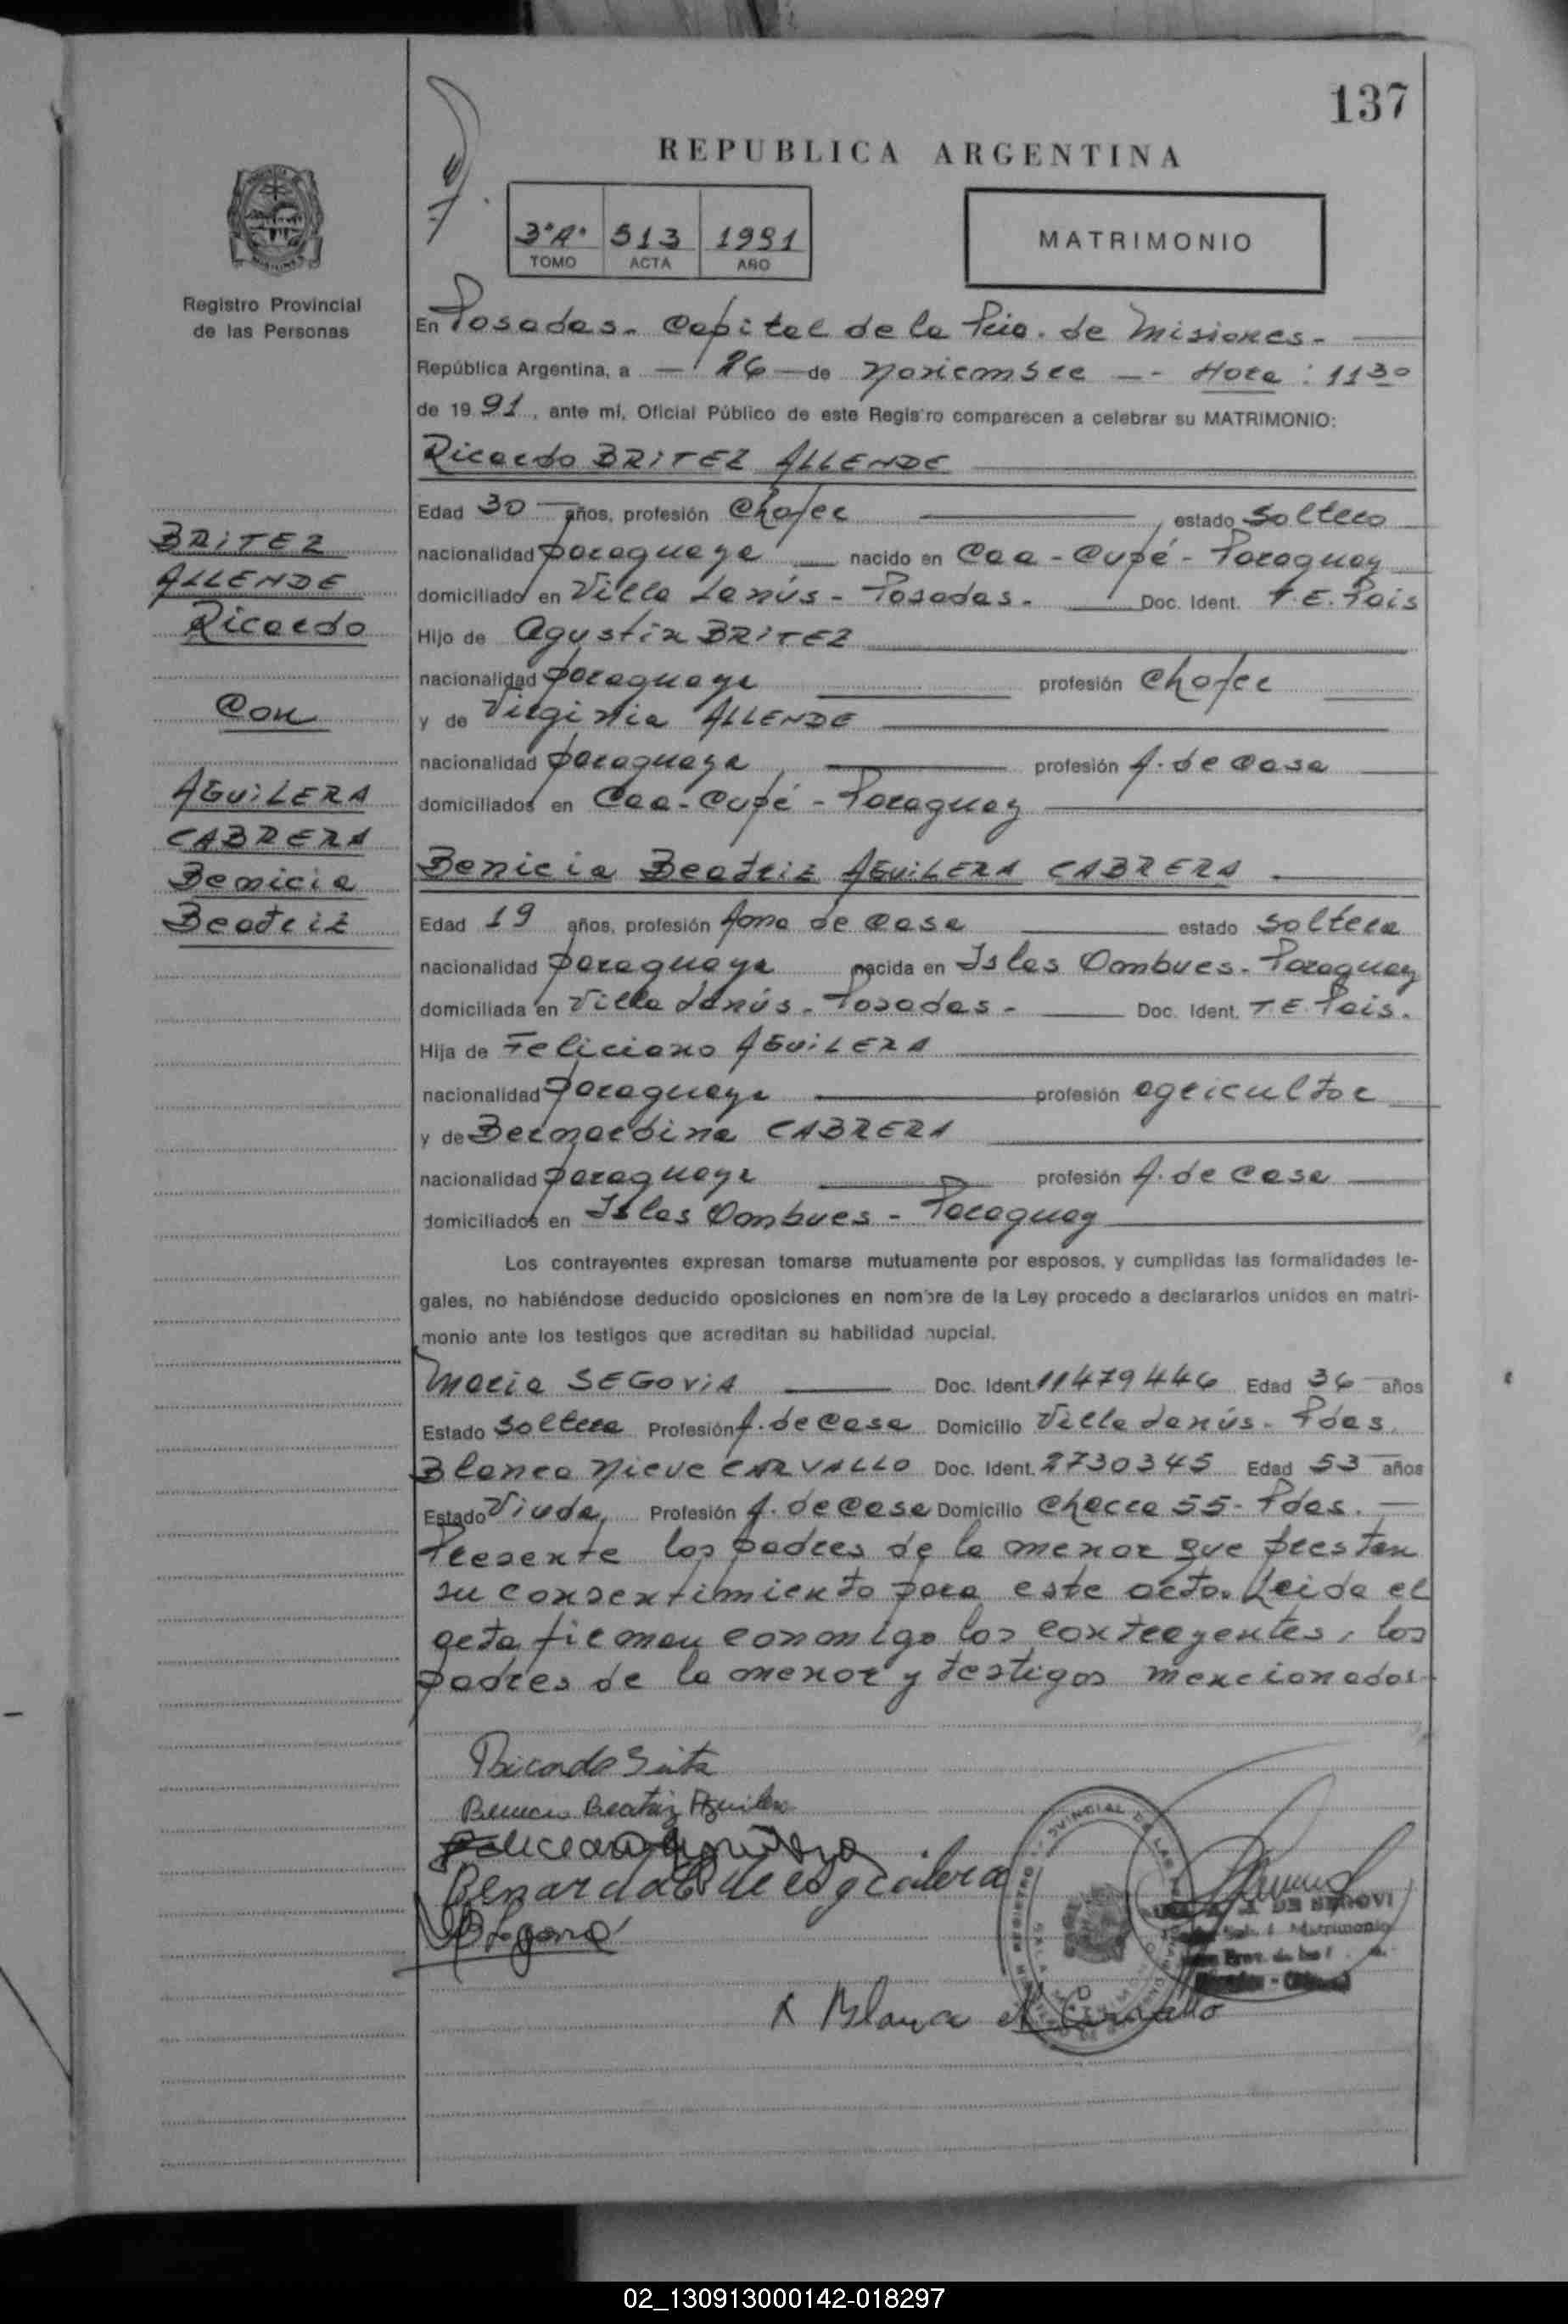 137
REPUBLICA ARGENTINA
3°"A" 513 1991
TOMO ACTA AÑO
MATRIMONIO
Registro Provincial
de las Personas
En Posadas- Capital de la Pcia. de Misiones-
República Argentina, a 26 de Noviembre -- Hora: 11 30
de 1991, ante mí, Oficial Público de este Registro comparecen a celebrar su MATRIMONIO:
Ricardo BRITEZ ALLENDE
Edad 30 años, profesión Chofer estado Soltero
nacionalidad paraguaya nacido en Caa-Cupé- Paraguay
domiciliado en Villa Lanús- Posadas- Doc. Ident. T.E. País
Hijo de Agustín BRITEZ
nacionalidad paraguaya profesión Chofer
y de Virginia ALLENDE
nacionalidad paraguaya profesión A. de casa
domiciliados en Caa-Cupé- Paraguay
BRITEZ
ALLENDE
Ricardo
Con
AGUILERA
CABRERA
Benicia
Beatriz
Benicia Beatriz AGUILERA CABRERA
Edad 19 años, profesión Ama de casa estado Soltera
nacionalidad paraguaya nacida en Islas Ombues- Paraguay
domiciliada en Villa Lanús- Posadas- Doc. Ident. T.E. País.
Hija de Feliciano AGUILERA
nacionalidad paraguaya profesión agricultor
y de Bernardina CABRERA
nacionalidad paraguaya profesión A. de casa
domiciliados en Islas Ombues- Paraguay
Los contrayentes expresan tomarse mutuamente por esposos, y cumplidas las formalidades le-
gales, no habiéndose deducido oposiciones en nombre de la Ley procedo a declararlos unidos en matri-
monio ante los testigos que acreditan su habilidad nupcial.
Maria SEGOVIA Doc. Ident. 11479446 Edad 36 años
Estado Soltera Profesión A. de casa Domicilio Villa Lanús- Pdas.
Blanca Nieve CARVALLO Doc. Ident. 2730345 Edad 53 años
Estado Viuda, Profesión A. de casa Domicilio Chacra 55- Pdas.
Presente los padres de la menor que prestan
su consentimiento para este acto. Leida el
acta firman conmigo los contrayentes, los
padres de la menor y testigos mencionados-
Ricardo Brites
Benicia Beatriz Aguilera
Feliciano Aguilera
de aguilera
X Blanca N Carvallo
DE SEGOVI
Matrimonio
02_130913000142-018297